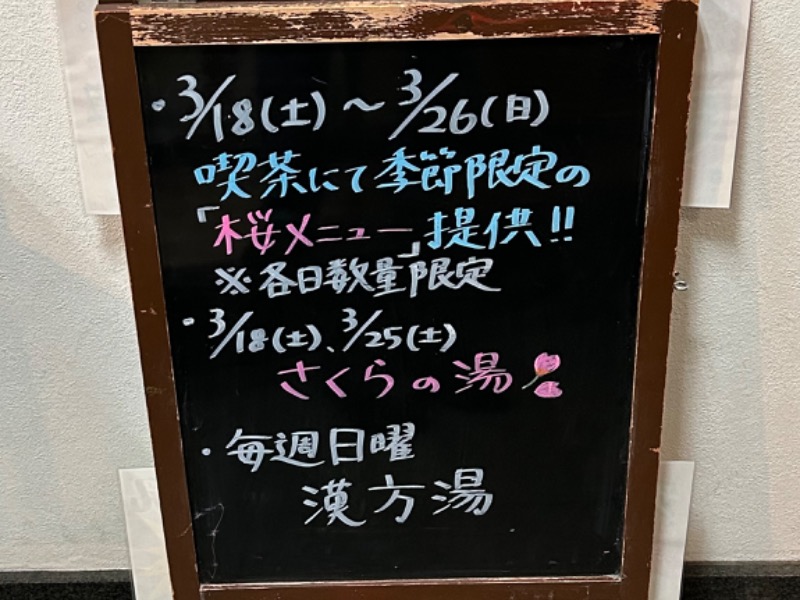 ・3/18(土)～3/26(日)
喫茶にて季節限定の
「桜メニュー」提供!!
※各日数量限定
・3/18(土)、3/25(土)
さくらの湯
・毎週日曜
漢方湯